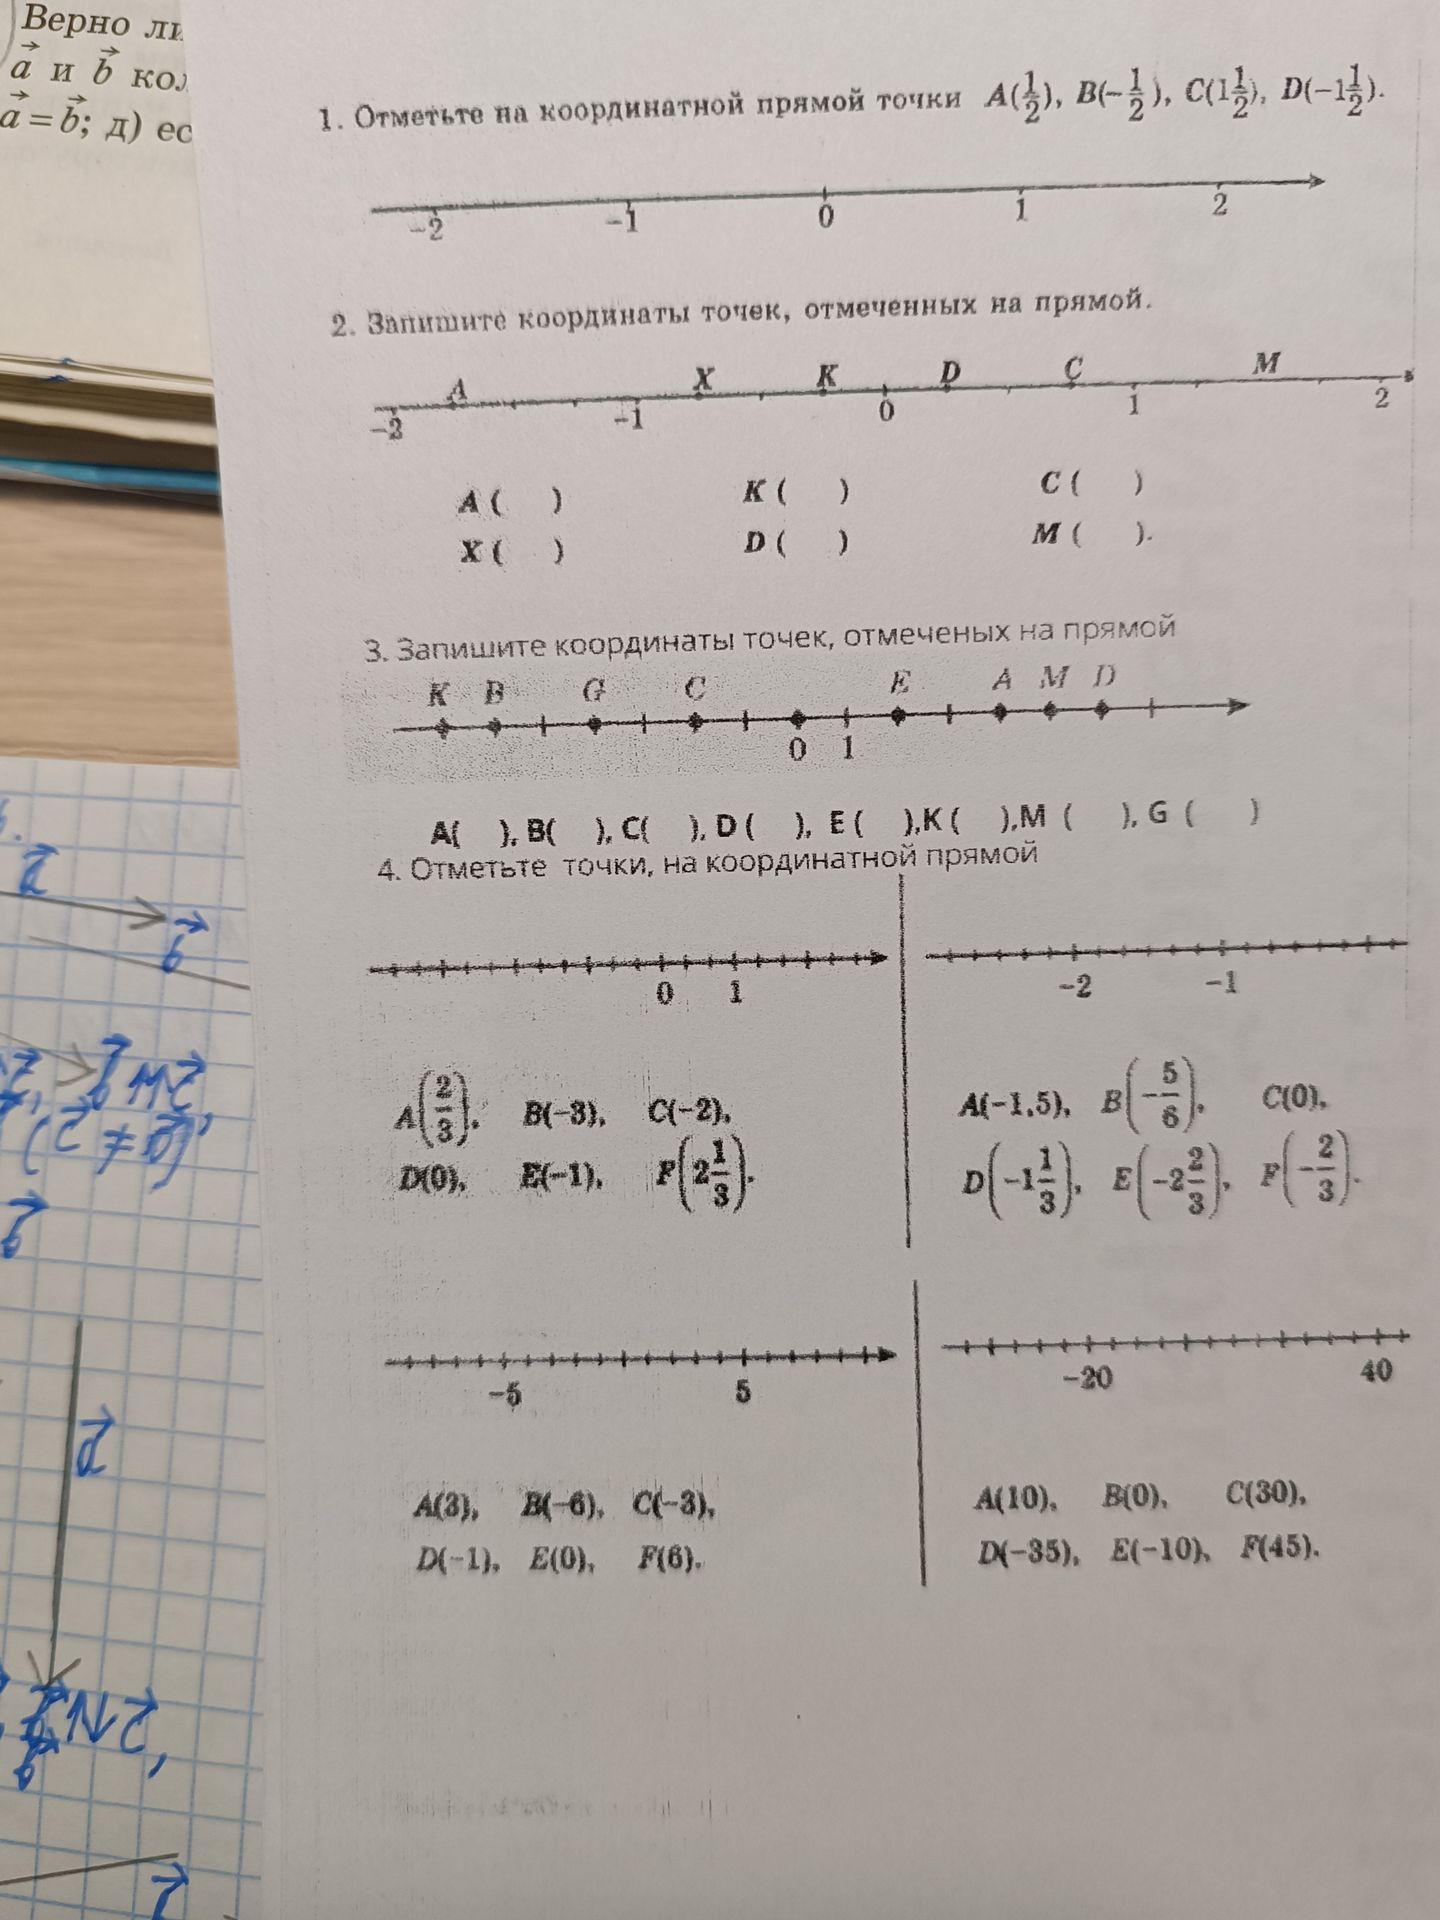 Верно ли
a⃗ и b⃗
a⃗ = b⃗; д)
1. Отметьте на координатной прямой точки A(1/2), B(−1/2), C(1 1/2), D(−1 1/2).
−2 −1 0 1 2
2. Запишите координаты точек, отмеченных на прямой.
A X K D C M
−2 −1 0 1 2
A ( ) K ( ) C ( )
X ( ) D ( ) M ( ).
3. Запишите координаты точек, отмеченых на прямой
K B G C E A M D
0 1
A( ), B( ), C( ), D ( ), E ( ),K ( ),M ( ), G ( )
4. Отметьте точки, на координатной прямой
0 1
A(2/3), B(−3), C(−2),
D(0), E(−1), F(2 1/3).
−2 −1
A(−1,5), B(−5/6), C(0),
D(−1 1/3), E(−2 2/3), F(−2/3).
−5 5
A(3), B(−6), C(−3),
D(−1), E(0), F(6).
−20 40
A(10), B(0), C(30),
D(−35), E(−10), F(45).